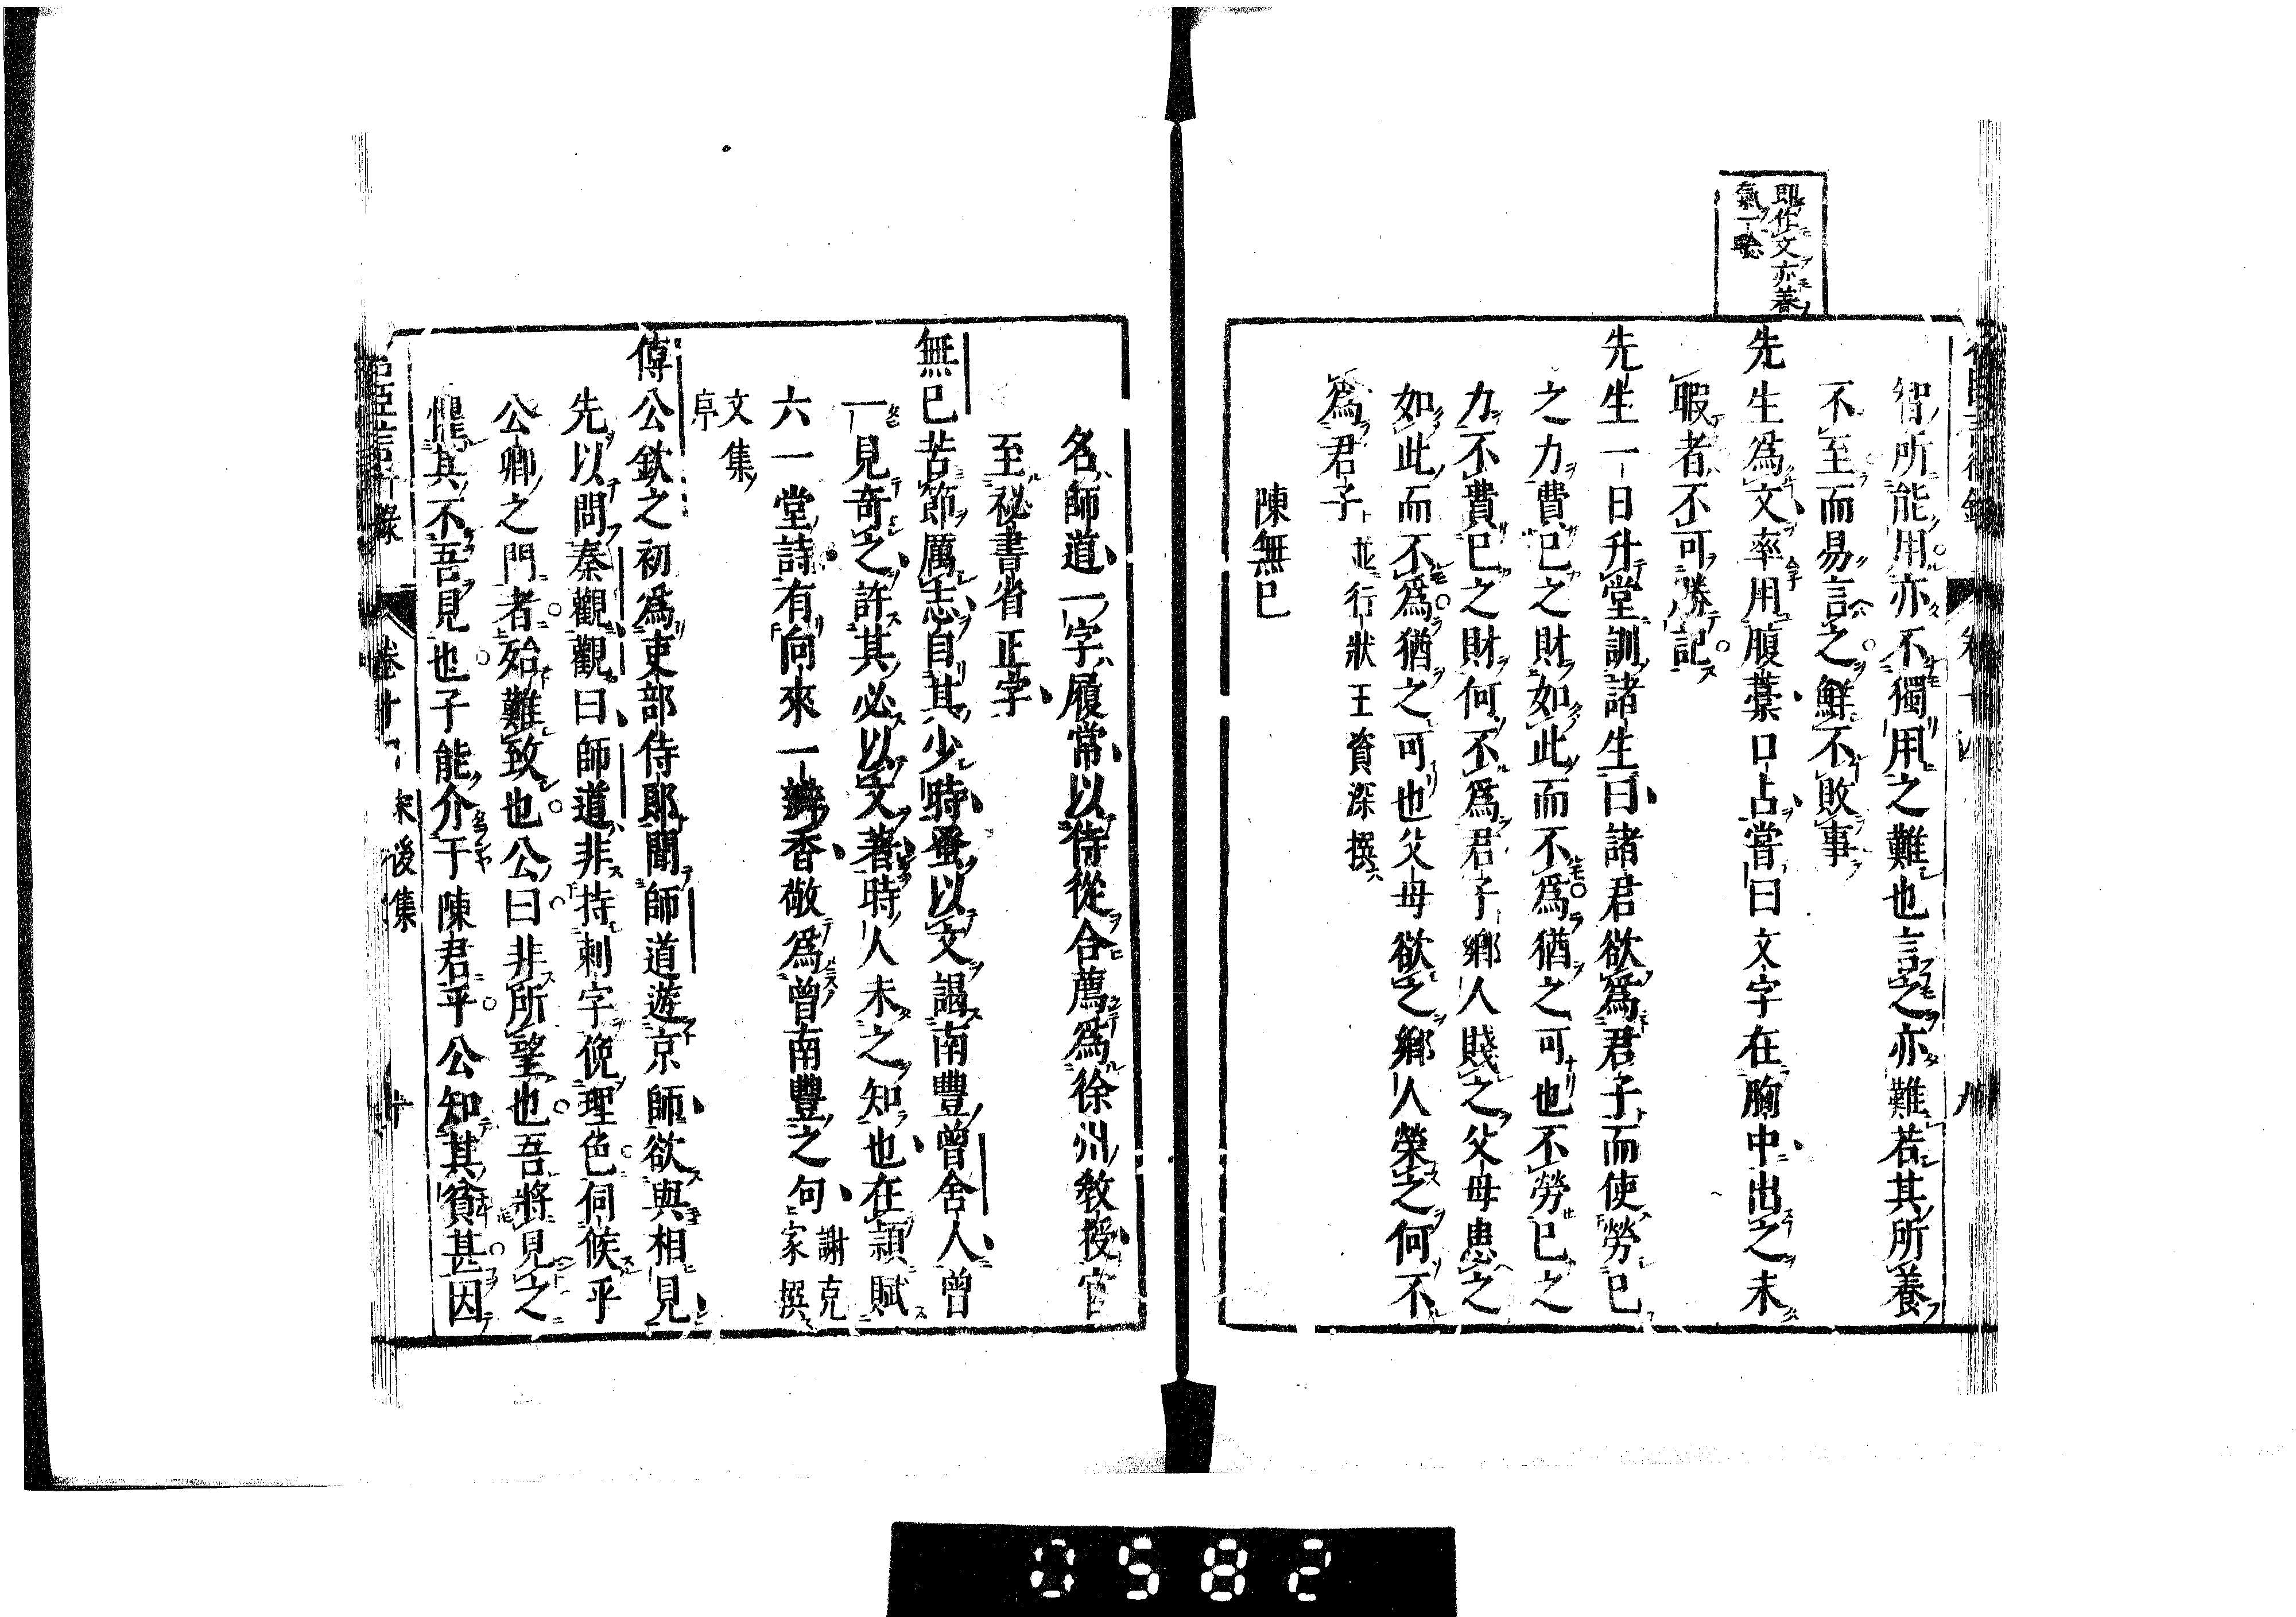 即作文亦養
氣一驗
智所能用亦不獨用之難也言之亦難若其所養
不至而易言之鮮不敗事
先生爲文率用腹藁口占嘗曰文字在胸中出之未
暇者不可勝記
先生一日升堂訓諸生曰諸君欲爲君子而使勞己
之力費己之財如此而不爲猶之可也不勞己之
力不費己之財何不爲君子鄉人賤之父母惡之
如此而不爲猶之可也父母欲之鄉人榮之何不
爲君子 並行狀王資深撰
陳無已
名師道一字履常以侍從合薦爲徐州敎授官
至祕書省正字
無已苦節厲志自其少時蚤以文謁南豐曾舍人曾
一見奇之許其必以文著時人未之知也在潁賦
六一堂詩有向來一瓣香敬爲曾南豐之句 謝克
家撰
文集
序
傅公欽之初爲吏部侍郎聞師道遊京師欲與相見
先以問秦觀觀曰師道非持刺字俛理色伺候乎
公卿之門者殆難致也公曰非所望也吾將見之
懼其不吾見也子能介于陳君乎公知其貧甚因
名臣言行錄 卷十 宋後集 十